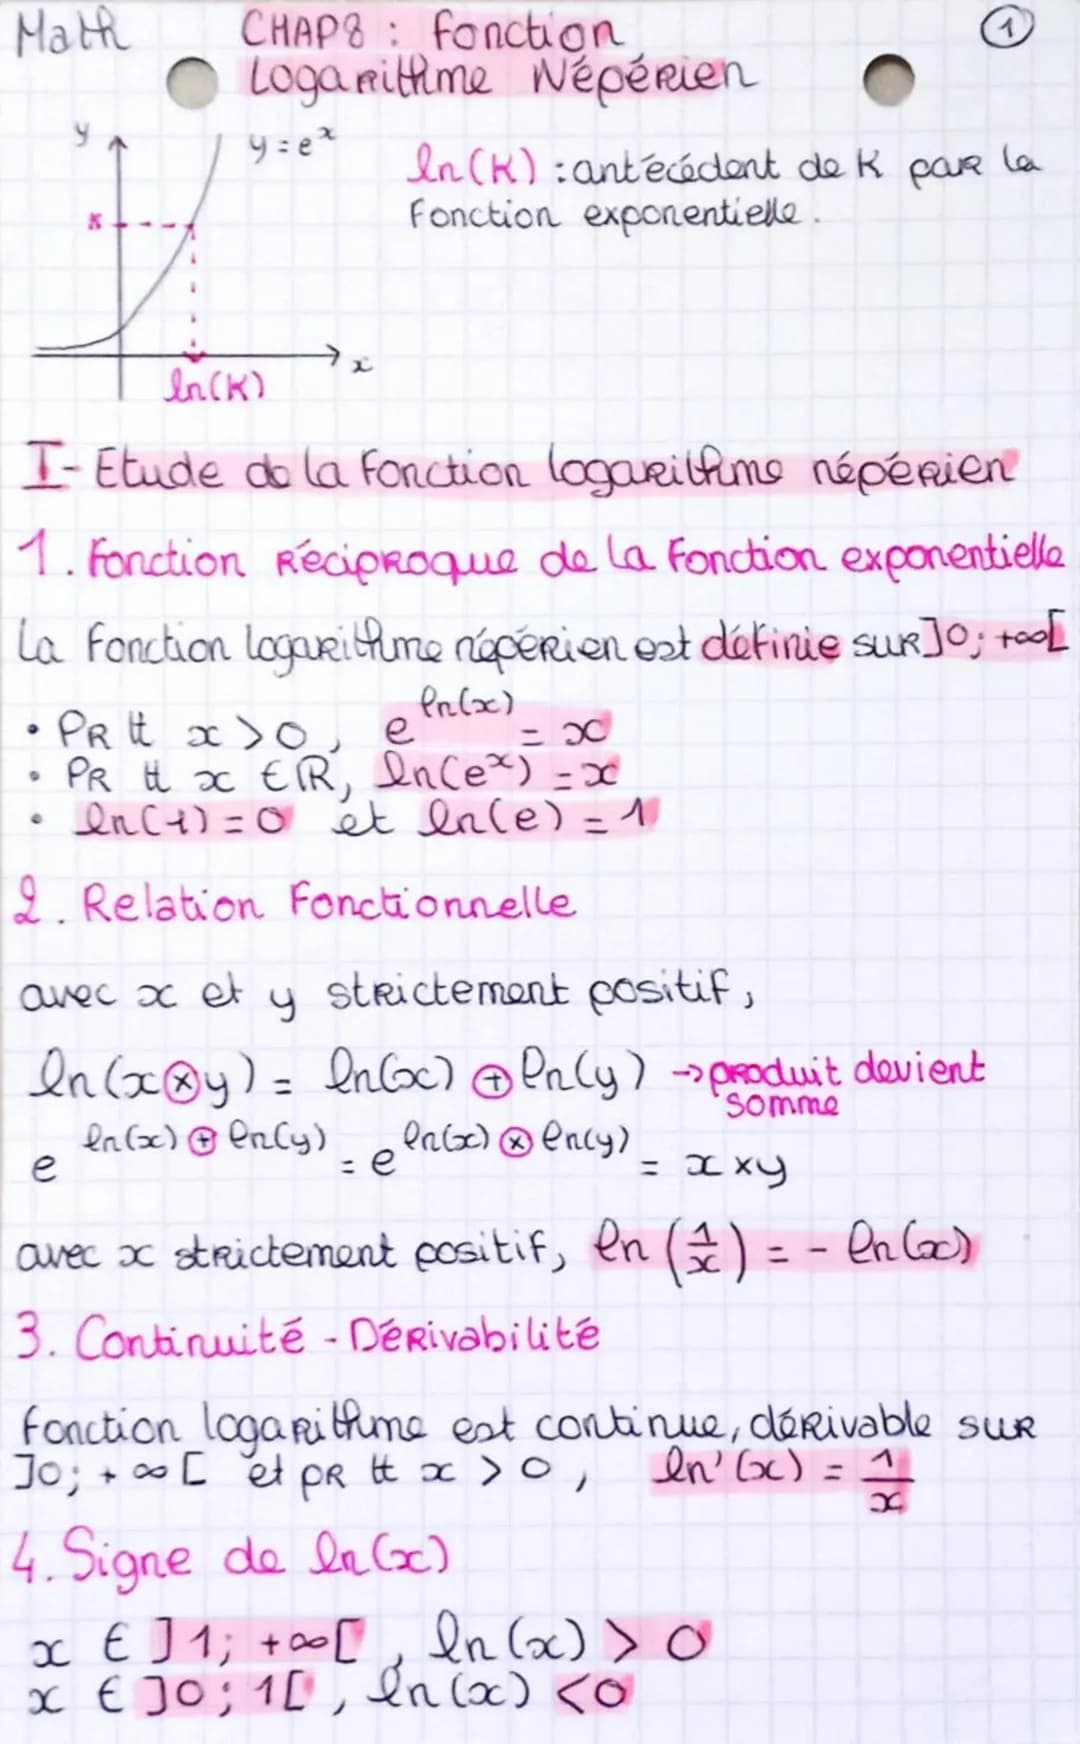 Math CHAP8 : Fonction ①
Logarithme Népérien
y
y = eˣ
ln(K) : antécédent de K par la
Fonction exponentielle.
K
x
ln(K)
I- Etude de la Fonction logarithme népérien
1. Fonction Réciproque de la Fonction exponentielle
La Fonction logarithme népérien est définie sur ]0; +∞[
• PR tt x > 0, e^ln(x) = x
• PR tt x ∈ ℝ, ln(eˣ) = x
• ln(1) = 0 et ln(e) = 1
2. Relation Fonctionnelle
avec x et y strictement positif,
ln(x⊗y) = ln(x) ⊕ ln(y) → produit devient
somme
e^ln(x) ⊕ ln(y) = e^ln(x) ⊗ ln(y) = x × y
avec x strictement positif, ln(1/x) = - ln(x)
3. Continuité - Dérivabilité
Fonction logarithme est continue, dérivable sur
]0; +∞[ et pR tt x > 0, ln'(x) = 1/x
4. Signe de ln(x)
x ∈ ]1; +∞[, ln(x) > 0
x ∈ ]0; 1[, ln(x) < 0